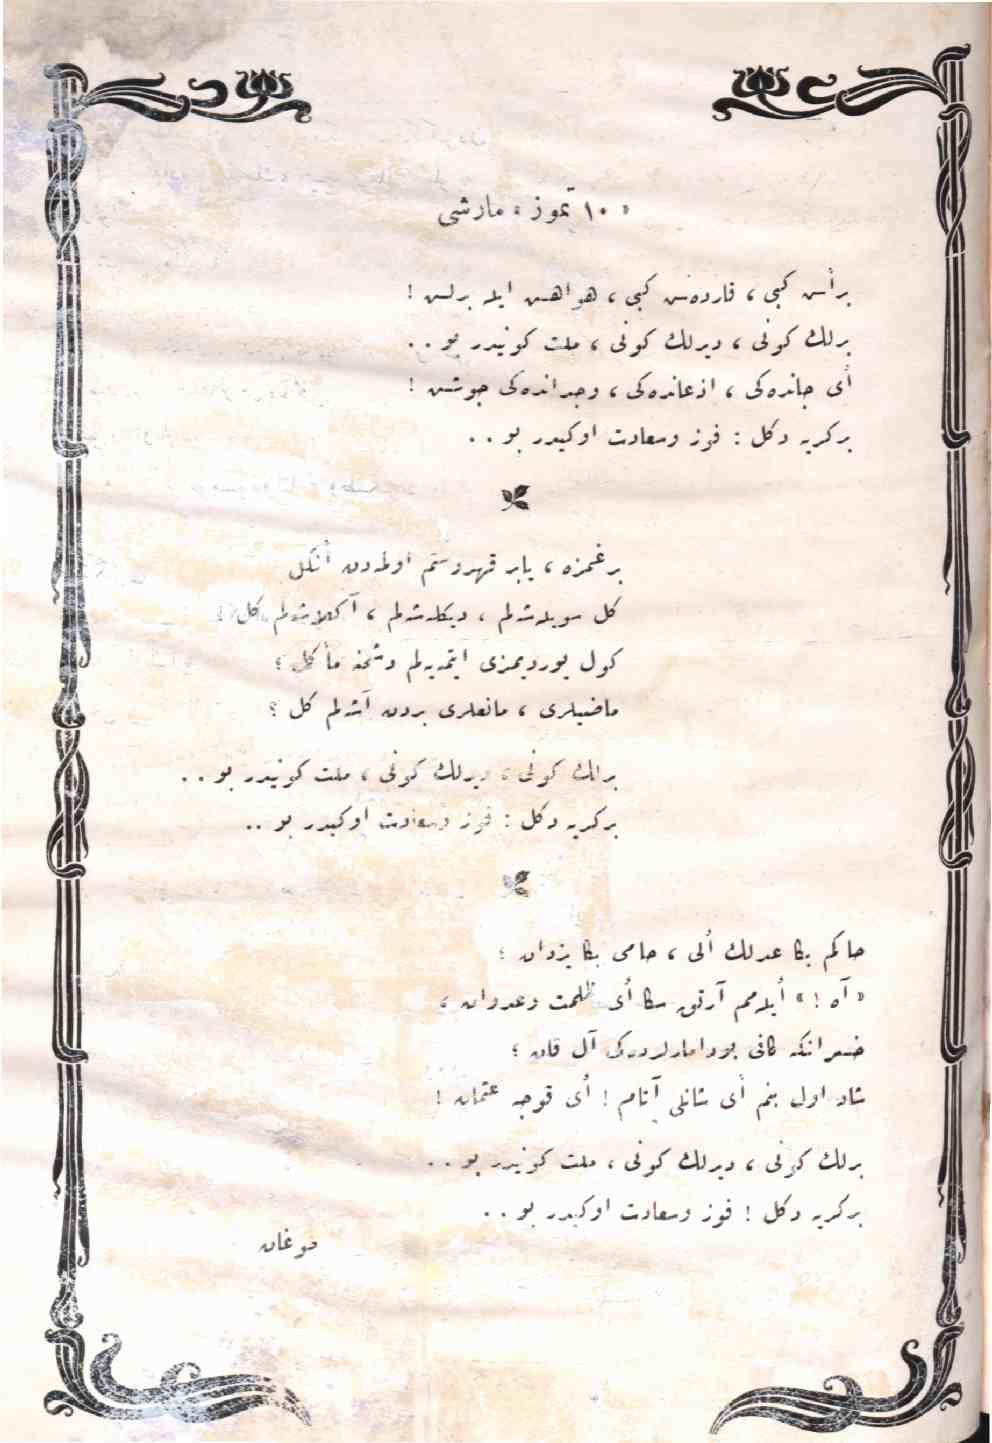 « ١٠ تموز » مارشی
برأس كبی ، قارده‌ش كبی ، هواهش ایله برلش !
برلك كونی ، دیرلك كونی ، ملت كونیدر بو . .
أی جانده‌كی ، اذعانده‌كی ، وجدانده‌كی جوشش !
بركریه دكل : فوز وسعادت اوكیدر بو . .
برغمزه ، یابر قهروستم اولمه‌دن آنكل
كل سویله‌شه‌لم ، دیكله‌شه‌لم ، آكلاشه‌لم كل !
كول یوردیمزی ایتمیه‌لم دشمنه مأكل ؛
ماضیلری ، مانعلری بردن آشه‌لم كل ؟
برلك كونی ، دیرلك كونی ، ملت كونیدر بو . .
بركریه دكل : فوز وسعادت اوكیدر بو . .
حاكم بكا عدلك ألی ، حامی بكا یزدان ؛
« آه ! » أیله‌مم آرتق سكا أی ظلمت وعدوان ،
كافی بودامارلرده‌كی آل قان ؛
شاد اول بنم أی شانلی آتام ! أی قوجه عثمان !
برلك كونی ، دیرلك كونی ، ملت كونیدر بو . .
بركریه دكل ! فوز وسعادت اوكیدر بو . .
دوغان